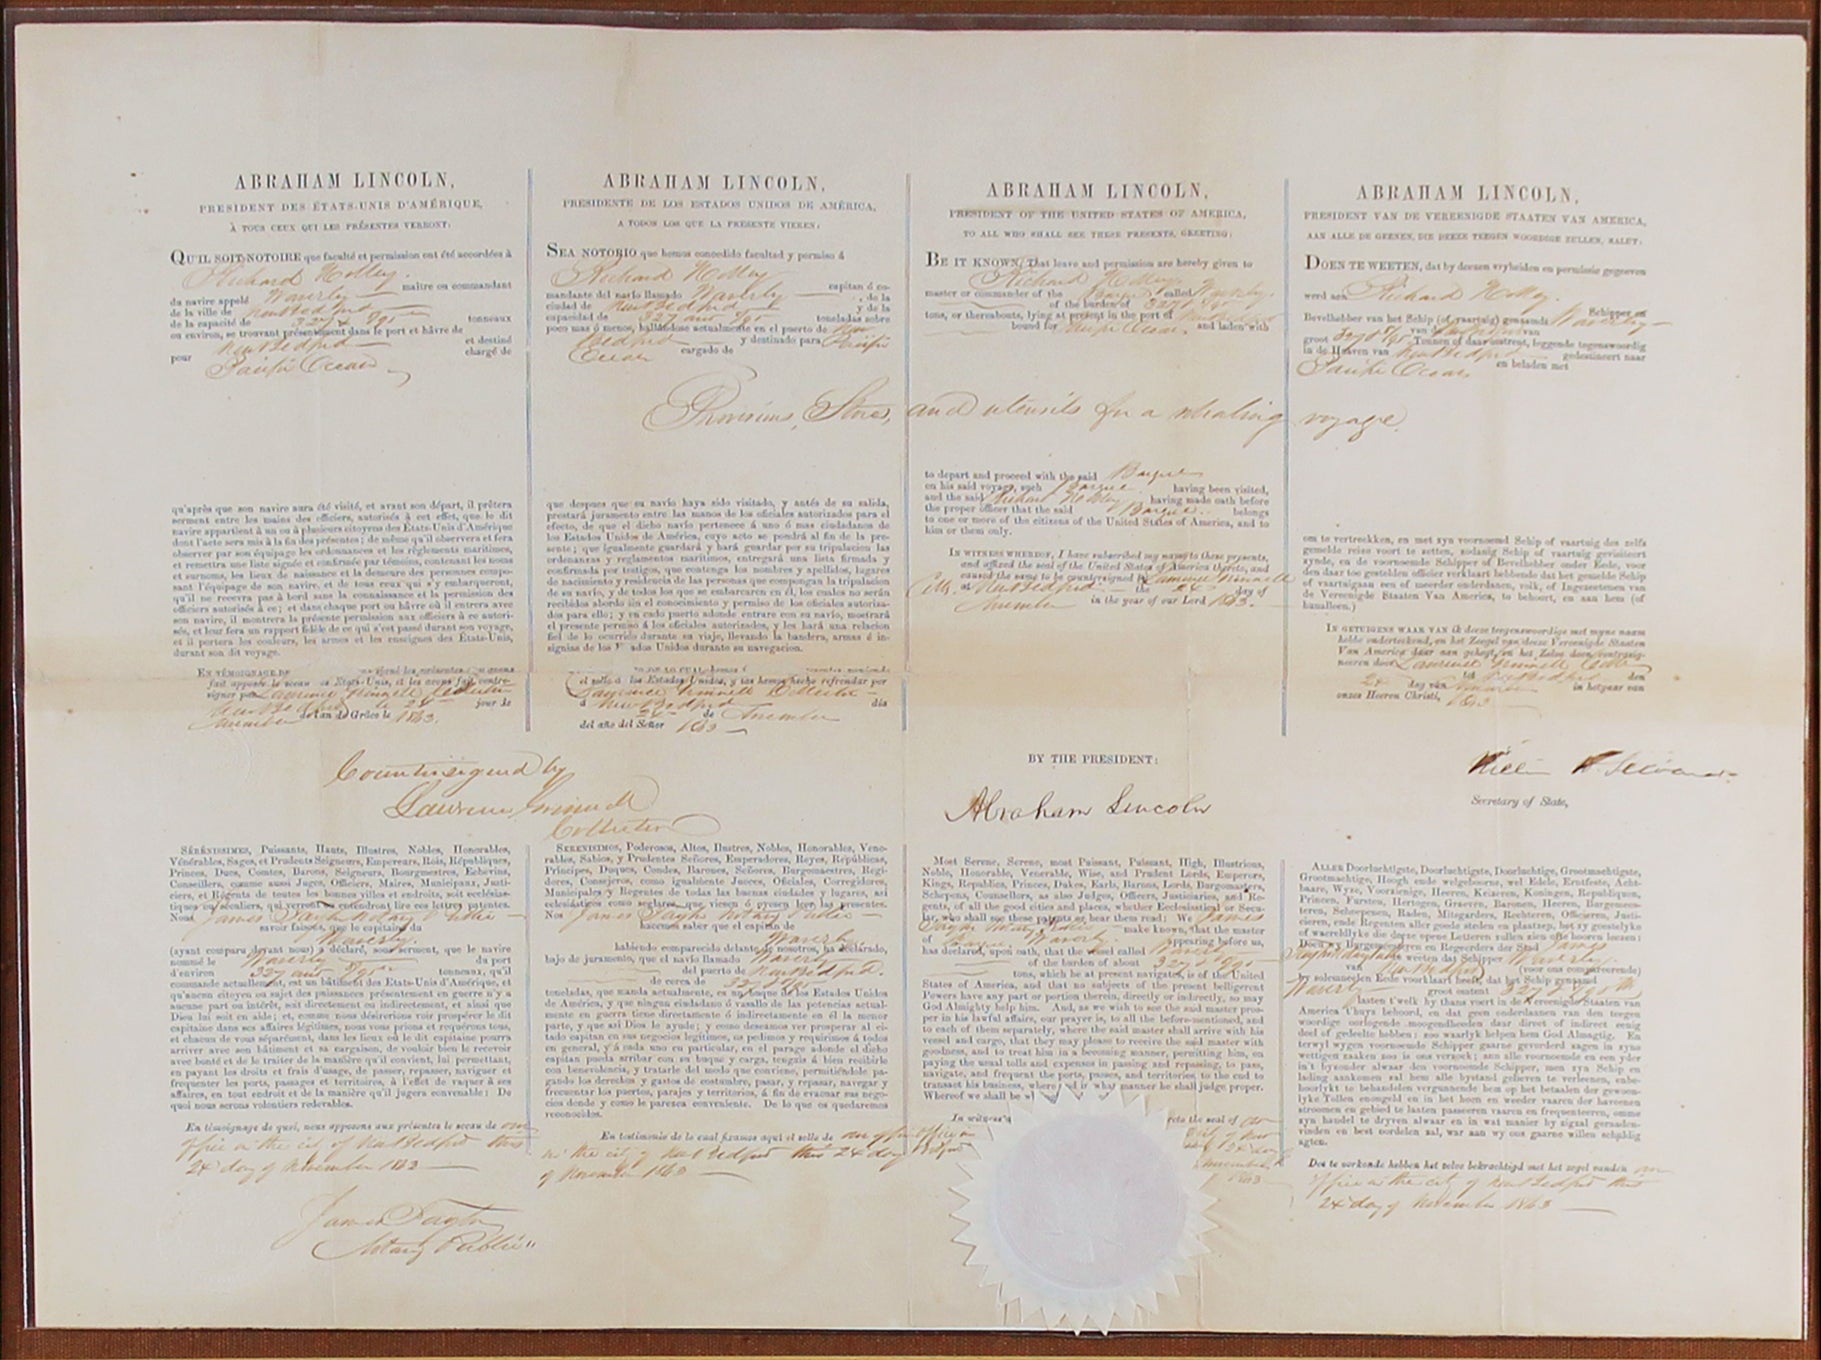 ABRAHAM LINCOLN,
PRESIDENT DES ÉTATS-UNIS D'AMÉRIQUE,
À TOUS CEUX QUI LES PRÉSENTES VERRONT:
QU'IL SOIT NOTOIRE que faculté et permission ont été accordées à
Richard Holley. maître ou commandant
du navire appelé Waverly
de la ville de New Bedford
de la capacité de 327 & /95 tonneaux
ou environ, se trouvant présentement dans le port et hâvre de
New Bedford et destiné
pour chargé de
Pacific Ocean
qu'après que son navire aura été visité, et avant son départ, il prêtera
serment entre les mains des officiers, autorisés à cet effet, que le dit
navire appartient à un ou à plusieurs citoyens des États-Unis d'Amérique
dont l'acte sera mis à la fin des présentes; de même qu'il observera et fera
observer par son équipage les ordonnances et les règlements maritimes,
et remettra une liste signée et confirmée par témoins, contenant les noms
et surnoms, les lieux de naissance et la demeure des personnes compo-
sant l'équipage de son navire, et de tous ceux qui s'y embarqueront,
qu'il ne recevra pas à bord sans la connaissance et la permission des
officiers autorisés à ce; et dans chaque port ou hâvre où il entrera avec
son navire, il montrera la présente permission aux officiers à ce autori-
sés, et leur fera un rapport fidèle de ce qui s'est passé durant son voyage,
et il portera les couleurs, les armes et les enseignes des États-Unis,
durant son dit voyage.
EN TÉMOIGNAGE DE
fait apposer le sceau États-Unis, et les avons fait contre-
signer par Laurence Grinnell Collector
New Bedford le 24 jour de
November de l'an de Grâce le 1863.
ABRAHAM LINCOLN,
PRESIDENTE DE LOS ESTADOS UNIDOS DE AMÉRICA,
A TODOS LOS QUE LA PRESENTE VIEREN:
SEA NOTORIO que hemos concedido facultad y permiso á
Richard Holley capitan ó co-
mandante del navío llamado Waverly, de la
ciudad de New Bedford y de la
capacidad de 327 and /95 toneladas sobre
poco mas ó ménos, hallándose actualmente en el puerto de New
Bedford y destinado para Pacific
Ocean cargado de
Provisions, Stores, and utensils for a whaling voyage.
que despues que su navío haya sido visitado, y ántés de su salida,
prestará juramento entre las manos de los oficiales autorizados para el
efecto, de que el dicho navío pertenece á uno ó mas ciudadanos de
los Estados Unidos de América, cuyo acto se pondrá al fin de la pre-
sente; que igualmente guardará y hará guardar por su tripulacion las
ordenanzas y reglamentos marítimos, entregará una lista firmada y
confirmada por testigos, que contenga los nombres y apellidos, lugares
de nacimiento y residencia de las personas que compongan la tripulacion
de su navío, y de todos los que se embarcaren en él, los cuales no serán
recibidos abordo sin el conocimiento y permiso de los oficiales autoriza-
dos para ello; y en cada puerto adonde entrare con su navío, mostrará
el presente permiso á los oficiales autorizados, y les hará una relacion
fiel de lo ocurrido durante su viaje, llevando la bandera, armas é in-
signias de los ados Unidos durante su navegacion.
el sello á los Estados Unidos, y las hemos hecho refrendar por
Laurence Grinnell Collector
á New Bedford dia
24 de November
del año del Señor 1863
ABRAHAM LINCOLN,
PRESIDENT OF THE UNITED STATES OF AMERICA,
TO ALL WHO SHALL SEE THESE PRESENTS, GREETING:
BE IT KNOWN, That leave and permission are hereby given to
Richard Holley
master or commander of the Barque called Waverly.
of the burden of 327 & /95
tons, or thereabouts, lying at present in the port of New Bedford
bound for Pacific Ocean, and laden with
to depart and proceed with the said Barque
on his said voyage, such Barque having been visited,
and the said Richard Holley having made oath before
the proper officer that the said Barque belongs
to one or more of the citizens of the United States of America, and to
him or them only.
IN WITNESS WHEREOF, I have subscribed my name to these presents,
and affixed the seal of the United States of America thereto, and
caused the same to be countersigned by Laurence Grinnell
at New Bedford the 24 day of
November in the year of our Lord 1863.
ABRAHAM LINCOLN,
PRESIDENT VAN DE VEREENIGDE STAATEN VAN AMERICA,
AAN ALLE DE GEENEN, DIE DEEZE TEEGEN WOORDIGE ZULLEN, SALUT:
DOEN TE WEETEN, dat by deezen vryheiden en permissie gegeeven
werd aan Richard Holley. Schipper en
Bevelhebber van het Schip (of vaartuig) genaamd Waverly
van New Bedford van
groot 327 & /95 Tonnen of daar omtrent, leggende tegenswoordig
in de Haaven van New Bedford gedestineert naar
Pacific Ocean en beladen met
om te vertrekken, en met zyn voornoemd Schip of vaartuig des zelfs
gemelde reize voort te zetten, zodanig Schip of vaartuig gevisiteert
zynde, en de voornoemde Schipper of Bevelhebber onder Eede, voor
den daar toe gestelden officier verklaart hebbende dat het gemelde Schip
of vaartuigaan een of meerder onderdanen, volk, of Ingezeetenen van
de Vereenigde Staaten Van America, to behoort, en aan hem (of
hunalleen.)
IN GETUIGENS WAAR VAN ik deeze teegenswoordige met myne naam
hebbe ondertekend, en het Zeegel van deeze Vereenigde Staaten
Van America daar aan gehegt, en het Zelve doen contrasig-
neeren door Laurence Grinnell Collector
tot New Bedford den
24 day van November in hetjaar van
onzes Heeren Christi, 1863
Countersigned by
Laurence Grinnell
Collector
BY THE PRESIDENT:
Abraham Lincoln
William H. Seward
Secretary of State,
SÉRÉNISSIMES, Puissants, Hauts, Illustres, Nobles, Honorables,
Vénérables, Sages, et Prudents Seigneurs, Empereurs, Rois, Républiques,
Princes, Ducs, Comtes, Barons, Seigneurs, Bourgmestres, Echevins,
Conseillers, comme aussi Juges, Officiers, Maires, Municipaux, Justi-
ciers, et Régents de toutes les bonnes villes et endroits, soit ecclésias-
tiques ou séculiers, qui verront ou entendront lire ces lettres patentes.
Nous James Taylor Notary Public
savoir faisons, que le capitaine du
Waverly.
(ayant comparu devant nous) a déclaré, sous serment, que le navire
nommé le Waverly du port
d'environ 327 and /95 tonneaux, qu'il
commande actuellement, est un bâtiment des États-Unis d'Amérique, et
qu'aucun citoyen ou sujet des puissances présentement en guerre n'y a
aucune part ou intérêt, soit directement ou indirectement, et ainsi que
Dieu lui soit en aide; et, comme nous désirerions voir prospérer le dit
capitaine dans ses affaires légitimes, nous vous prions et requérons tous,
et chacun de vous séparément, dans les lieux où le dit capitaine pourra
arriver avec son bâtiment et sa cargaison, de vouloir bien le recevoir
avec bonté et de le traiter de la manière qu'il convient, lui permettant,
en payant les droits et frais d'usage, de passer, repasser, naviguer et
frequenter les ports, passages et territoires, à l'effet de vaquer à ses
affaires, en tout endroit et de la manière qu'il jugera convenable: De
quoi nous serons volontiers redevables.
En témoignage de quoi, nous apposons aux présentes le sceau de our
office in the city of New Bedford this
24 day of November 1863
James Taylor
Notary Public
SERENISIMOS, Poderosos, Altos, Ilustres, Nobles, Honorables, Vene-
rables, Sabios, y Prudentes Señores, Emperadores, Reyes, Repúblicas,
Príncipes, Duques, Condes, Barones, Señores, Burgomaestres, Regi-
dores, Consejeros, como igualmente Jueces, Oficiales, Corregidores,
Municipales y Regentes de todas las buenas ciudades y lugares, así
eclesiásticos como seglares, que viesen ó oyesen leer las presentes.
Nos James Taylor Notary Public
hacemos saber que el capitán de
Waverly
habiendo comparecido delante de nosotros, ha declarado,
bajo de juramento, que el navío llamado Waverly
del puerto de New Bedford.
de cerca de 327 & /95
toneladas, que manda actualmente, es un buque de los Estados Unidos
de América, y que ningun ciudadano ó vasallo de las potencias actual-
mente en guerra tiene directamente ó indirectamente en él la menor
parte, y que así Dios le ayude; y como deseamos ver prosperar al ci-
tado capitan en sus negocios legítimos, os pedimos y requirimos á todos
en general, y á cada uno en particular, en el parage adonde el dicho
capitan pueda arribar con su buque y carga, tengais á bien recibirle
con benevolencia, y tratarle del modo que conviene, permitiéndole pa-
gando los derechos y gastos de costumbre, pasar, y repasar, navegar y
frecuentar los puertos, parajes y territorios, á fin de evacuar sus nego-
cios donde y como le parezca conveniente. De lo que os quedaremos
reconocidos.
En testimonio de lo cual fixamos aquí el sello de our office
in the city of New Bedford this 24 day
of November 1863
Most Serene, Serene, most Puissant, Puissant, High, Illustrious,
Noble, Honorable, Venerable, Wise, and Prudent Lords, Emperors,
Kings, Republics, Princes, Dukes, Earls, Barons, Lords, Burgomasters,
Schepens, Counsellors, as also Judges, Officers, Justiciaries, and Re-
gents, of all the good cities and places, whether Ecclesiastical or Secu-
lar, who shall see these patents or hear them read: We James
Taylor Notary Public make known, that the master
of Barque Waverly. appearing before us,
has declared, upon oath, that the vessel called Waverly
of the burden of about 327 & /95
tons, which he at present navigates, is of the United
States of America, and that no subjects of the present belligerent
Powers have any part or portion therein, directly or indirectly, so may
God Almighty help him. And, as we wish to see the said master pros-
per in his lawful affairs, our prayer is, to all the before-mentioned, and
to each of them separately, where the said master shall arrive with his
vessel and cargo, that they may please to receive the said master with
goodness, and to treat him in a becoming manner, permitting him, on
paying the usual tolls and expenses in passing and repassing, to pass,
navigate, and frequent the ports, passes, and territories, to the end to
transact his business, where and in what manner he shall judge proper.
Whereof we shall be
In witness
the seal of our
office in city of New
Bedford 24 day
November
1863
ALLER Doorluchtigste, Doorluchtigste, Doorluchtige, Grootmachtigste,
Grootmachtige, Hoogh ende welgebourne, wel Edele, Erntfeste, Acht-
baare, Wyze, Voorzienige, Heeren, Keizeren, Koningen, Republiquen,
Princen, Fursten, Hertogen, Graeven, Baronen, Heeren, Burgemees-
teren, Scheepenen, Raden, Mitsgarders, Rechteren, Officieren, Justi-
cieren, ende Regenten aller goede steden en plaetzen, het zy geestelyke
of waereldlyke die deeze opene Letteren zullen zien ofte hooren leezen:
Doen wy Burgemeesteren en Regeerders der Stad James
Taylor Notary Public weeten dat Schipper Waverly.
van New Bedford (voor ons compareerende)
by solemneelen Eede voorklaart heeft, dat het Schip genaamd
Waverly groot ontent 327 &
lasten t'welk hy thans voert in de Vereenigde Staaten van
America 't'huys behoord, en dat geen onderdaanen van den teegen
woordige oorlogende moogendheeden daar direct of indirect eenig
deel of gedeelte hebben; zoo waarlyk helpen hem God Almagtig. En
terwyl wygen voornoemde Schipper gaarne gevorderd zagen in zyne
wettigen zaaken zoo is ons verzoek; aan alle voornoemde en een yder
in't byzonder alwaar den voornoemde Schipper, men zyn Schip en
lading aankomen zal hem alle bystand gelieven te verleenen, enbe-
hoorlykt te behandelen vergunnende hem op het betaalen der gewoon-
lyke Tollen enongeld en in het hoen en weeder vaaren der haveenen
stroomen en gebied te lasten passeeren vaaren en frequenteeren, omme
zyn handel te dryven alwaar en in wat manier by zigzal geraaden-
vinden en best oordelen zal, war aan wy ons gaarne willen schuldig
agten.
Des te oorkonde hebben het zelve bekrachtigd met het zegel vanden our
office in the city of New Bedford this
24 day of November 1863